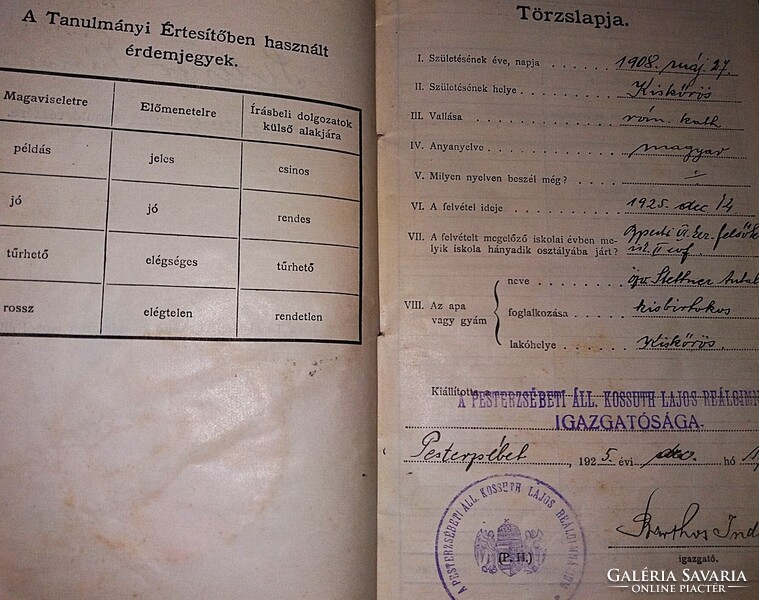 A Tanulmányi Értesítőben használt
érdemjegyek.
Magaviseletre Előmenetelre Írásbeli dolgozatok
külső alakjára
példás jeles csinos
jó jó rendes
tűrhető elégséges tűrhető
rossz elégtelen rendetlen
Törzslapja.
I. Születésének éve, napja . . . . 1908. máj. 27.
II. Születésének helye . . . . . . Kiskőrös
III. Vallása . . . . . . róm. kath
IV. Anyanyelve . . . . . . magyar
V. Milyen nyelven beszél még? . . .
VI. A felvétel ideje . . . . . . 1925. dec 14
VII. A felvételt megelőző iskolai évben me-
lyik iskola hányadik osztályába járt? . . II
VIII. Az apa
vagy gyám
neve . . . . özv Stettner Antal
foglalkozása . . kisbirtokos
lakóhelye . . . Kiskőrös.
Kiállította
A PESTERZSÉBETI ÁLL. KOSSUTH LAJOS
IGAZGATÓSÁGA.
Pesterzsébet , 1925 évi dec. hó
A PESTERZSÉBETI ÁLL. KOSSUTH LAJOS
(P. H.)
igazgató.
GALÉRIA SAVARIA
ONLINE PIACTÉR